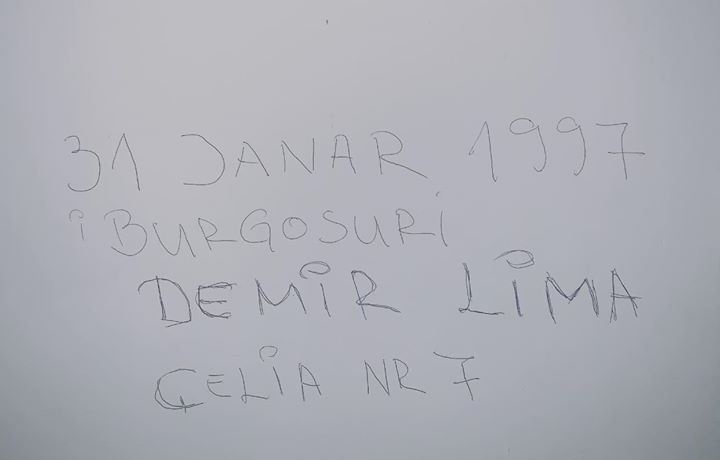 31 JANAR 1997
i BURGOSURi
DEMiR LiMA
ÇELiA NR 7